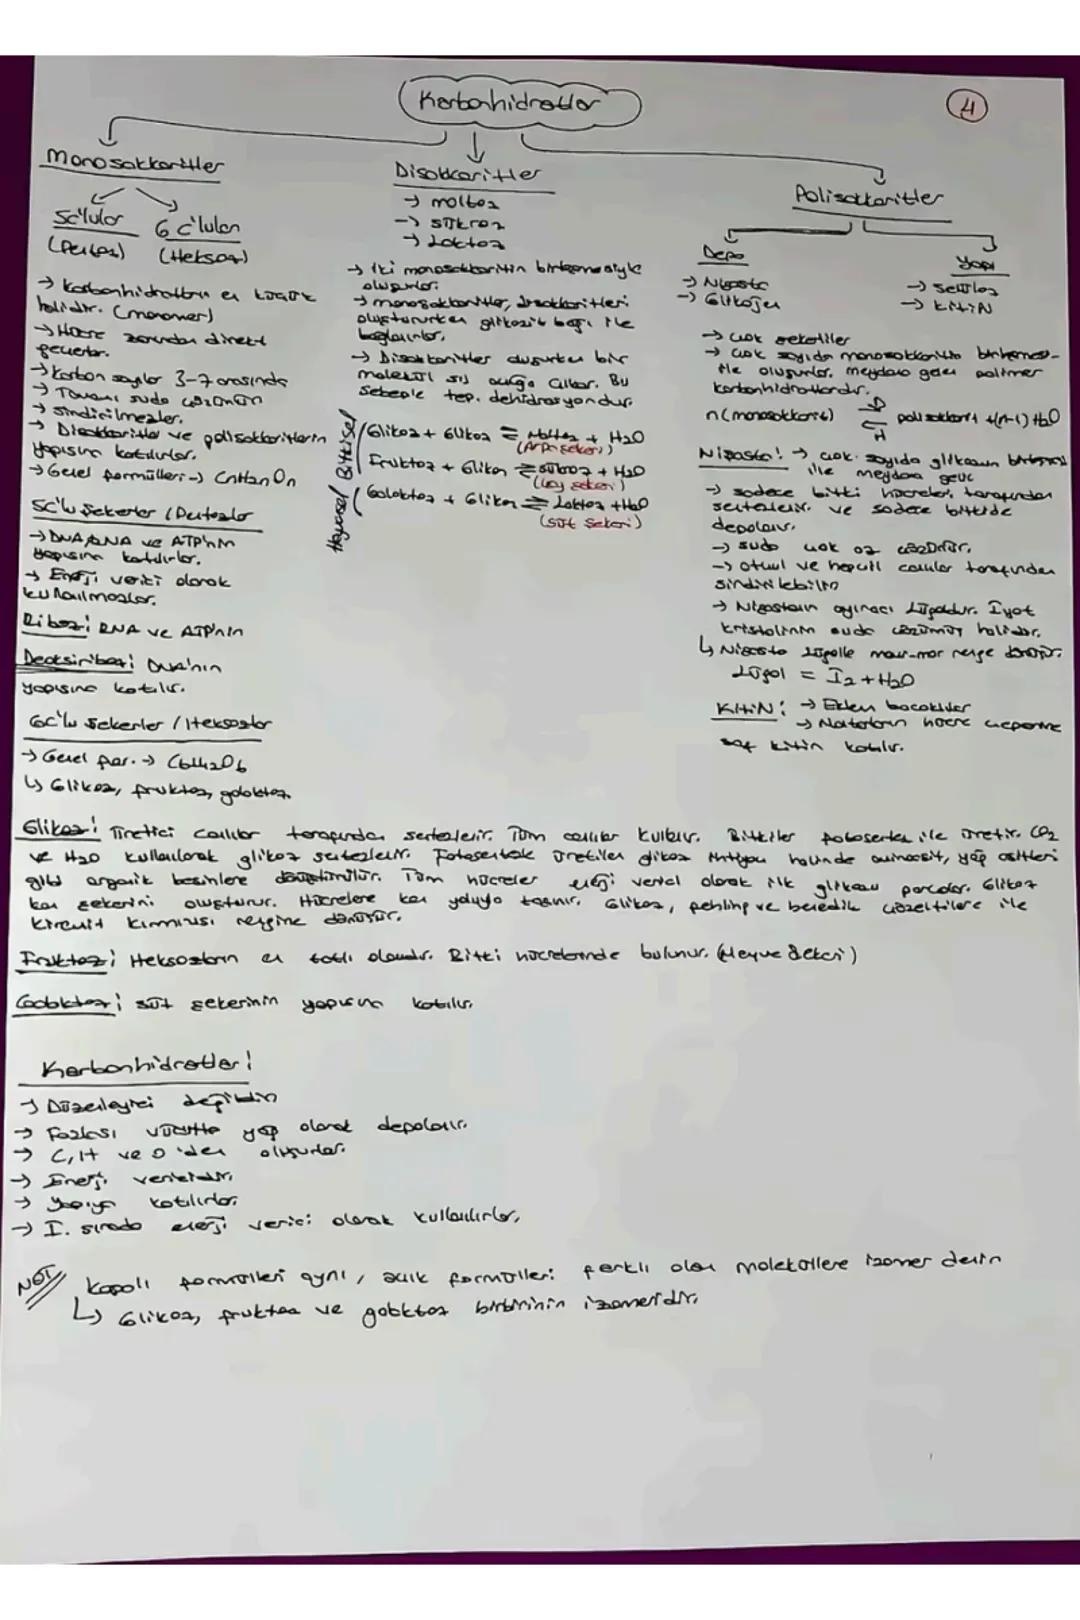 Karbonhidratlar
4
Monosakkaritler
5C'lular 6C'lular
(Pentoz) (Heksoz)
→ Karbonhidratların en küçük
halidir. (monomer)
→ Hücre zarından direkt
geçerler.
→ Karbon sayıları 3-7 arasında
→ Tamamı suda çözünür
→ Sindirilmezler.
→ Disakkaritler ve polisakkaritlerin
yapısına katılırlar.
→ Genel formülleri → CnH2nOn
5C'lu Şekerler / Pentozlar
→ DNA, RNA ve ATP'nin
yapısına katılırlar.
→ Enerji verici olarak
kullanılmazlar.
Riboz: RNA ve ATP'nin
Deoksiriboz: DNA'nın
yapısına katılır.
6C'lu Şekerler / Heksozlar
→ Genel for. → C6H12O6
↳ Glikoz, fruktoz, galaktoz
Disakkaritler
→ maltoz
→ sükroz
→ Laktoz
→ İki monosakkaritin birleşmesiyle
oluşurlar.
→ monosakkaritler, disakkaritleri
oluştururken glikozit bağı ile
bağlanırlar.
→ Disakkaritler oluşurken bir
molekül su açığa çıkar. Bu
sebeple tep. dehidrasyondur.
Bitkisel
Glikoz + Glikoz ⇌ Maltoz + H2O
(Arpa şekeri)
Fruktoz + Glikoz ⇌ sükroz + H2O
(Çay şekeri)
Hayvansal
Galaktoz + Glikoz ⇌ Laktoz + H2O
(süt şekeri)
Polisakkaritler
Depo Yapı
→ Nişasta → selüloz
→ Glikojen → kitiN
→ çok şekerliler
→ çok sayıda monosakkaritin birleşmesi-
ile oluşurlar. meydana gelen polimer
karbonhidratlardır.
n(monosakkarit) D ⇌ H polisakkarit + (n-1) H2O
Nişasta: → çok sayıda glikozun birleşmesi
ile meydana gelir
→ sadece bitki hücreleri tarafından
sentezlenir. ve sadece bitkide
depolanır.
→ suda çok az çözünür.
→ otçul ve hepçil canlılar tarafından
sindirilebilir
→ Nişastanın ayıracı Lügoldur. İyot
kristalinin suda çözünmüş halidir.
↳ Nişasta Lügolle mavi-mor renge dönüşür.
Lügol = I2 + H2O
KitiN: → Eklem bacaklılar
→ Mantarların hücre çeperine
saf kitin katılır.
Glikoz: Üretici canlılar tarafından sentezlenir. Tüm canlılar kullanır. Bitkiler fotosentez ile üretir. CO2
ve H2O kullanılarak glikoz sentezlenir. Fotosentezle üretilen glikoz ihtiyaç halinde aminoasit, yağ asitleri
gibi organik besinlere dönüştürülür. Tüm hücreler enerji verici olarak ilk glikozu parçalar. Glikoz
kan şekerini oluşturur. Hücrelere kan yoluyla taşınır. Glikoz, fehling ve benedik çözeltilere ile
kiremit kırmızısı rengine dönüşür.
Fruktoz: Heksozların en tatlı olanıdır. Bitki hücrelerinde bulunur. (Meyve şekeri)
Galaktoz: süt şekerinin yapısına katılır.
Karbonhidratlar:
→ Düzenleyici değildir
→ Fazlası vücutta yağ olarak depolanır.
→ C, H ve O'den oluşurlar.
→ Enerji vericidir.
→ Yapıya katılırlar.
→ I. sırada enerji verici olarak kullanılırlar.
NOT
Kapalı formülleri aynı, açık formülleri farklı olan moleküllere izomer denir
↳ Glikoz, fruktoz ve galaktoz birbirinin izomeridir.